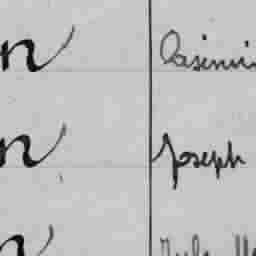 n Casimi
n Joseph
n